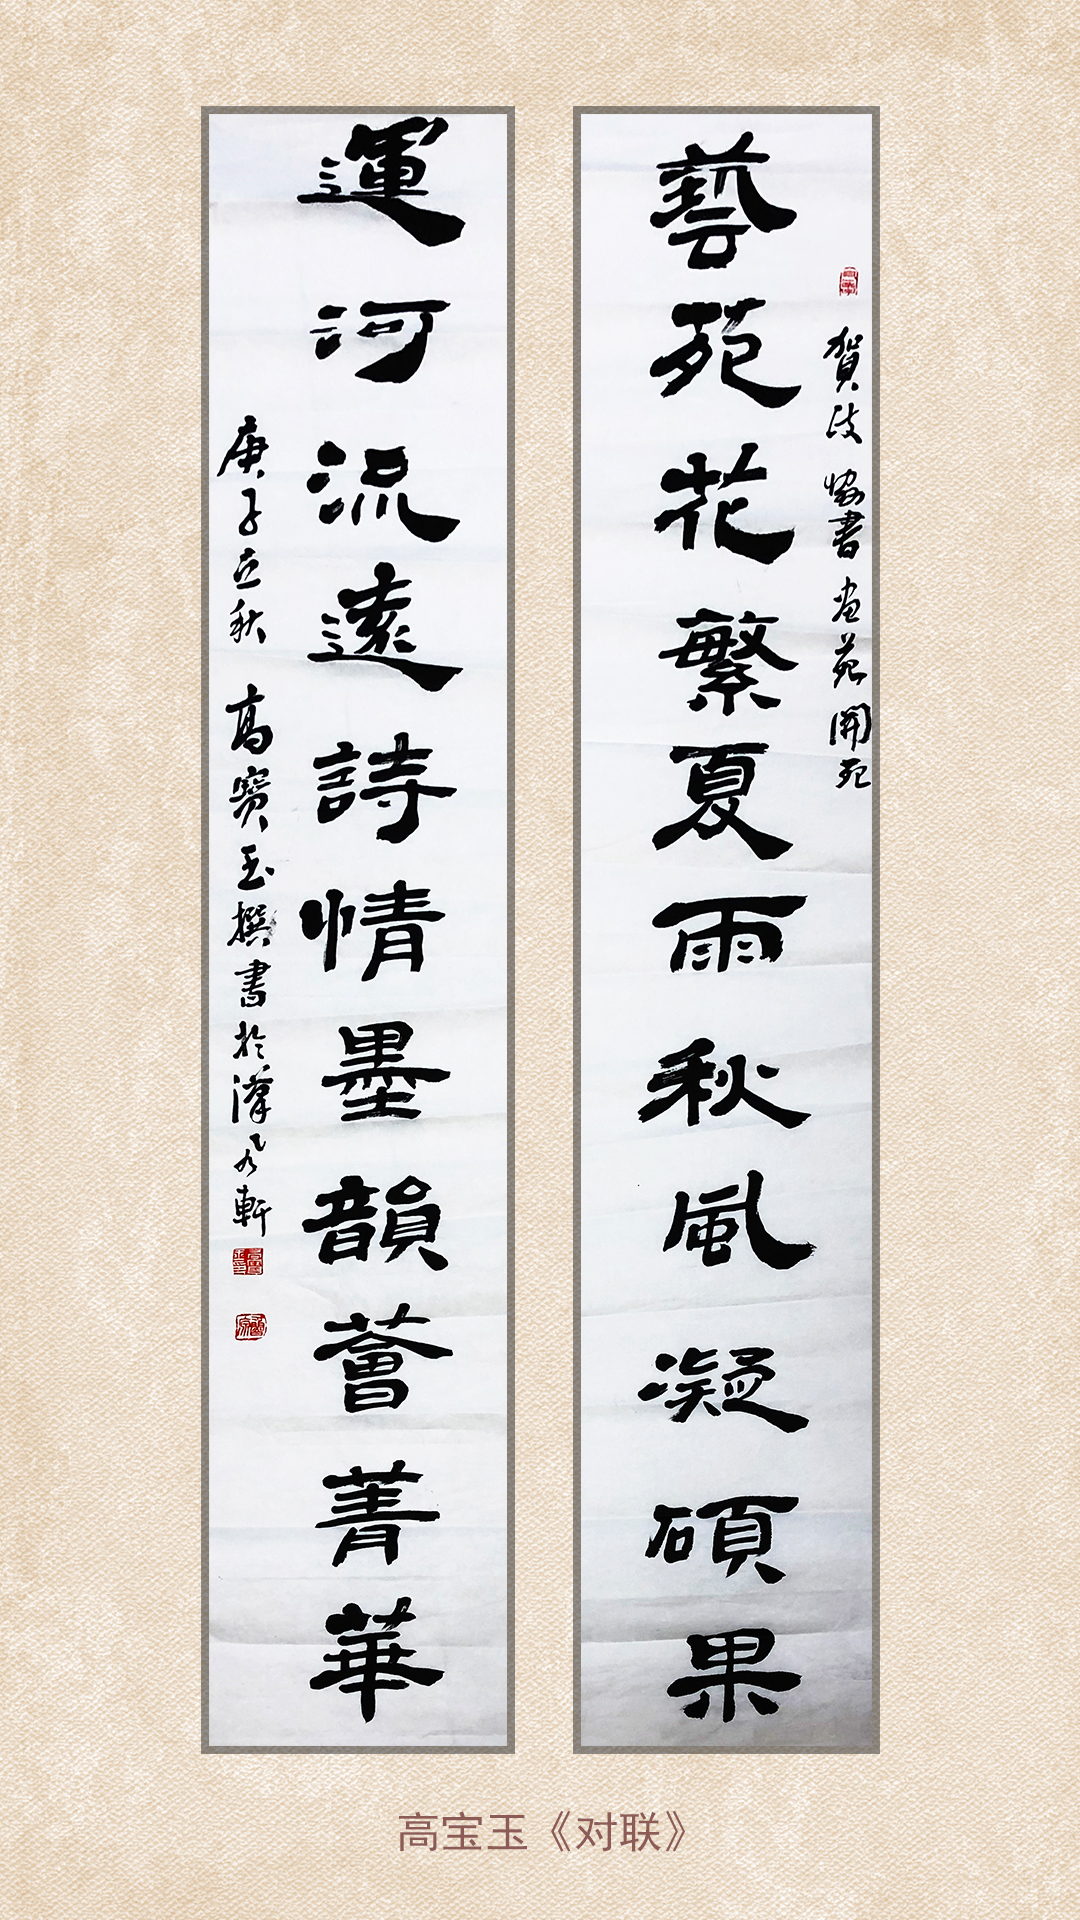 賀政協書画苑開苑
藝苑花繁夏雨秋風凝碩果
運河流遠詩情墨韻薈菁華
庚子立秋 高寶玉撰書於漢軒
高宝玉《对联》